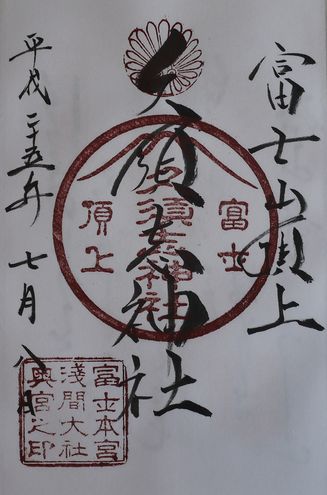 富士山頂上
久須志神社
平成二十五年七月八日
富士
頂上
久須志神社
富士本宮
浅間大社
奥宮之印